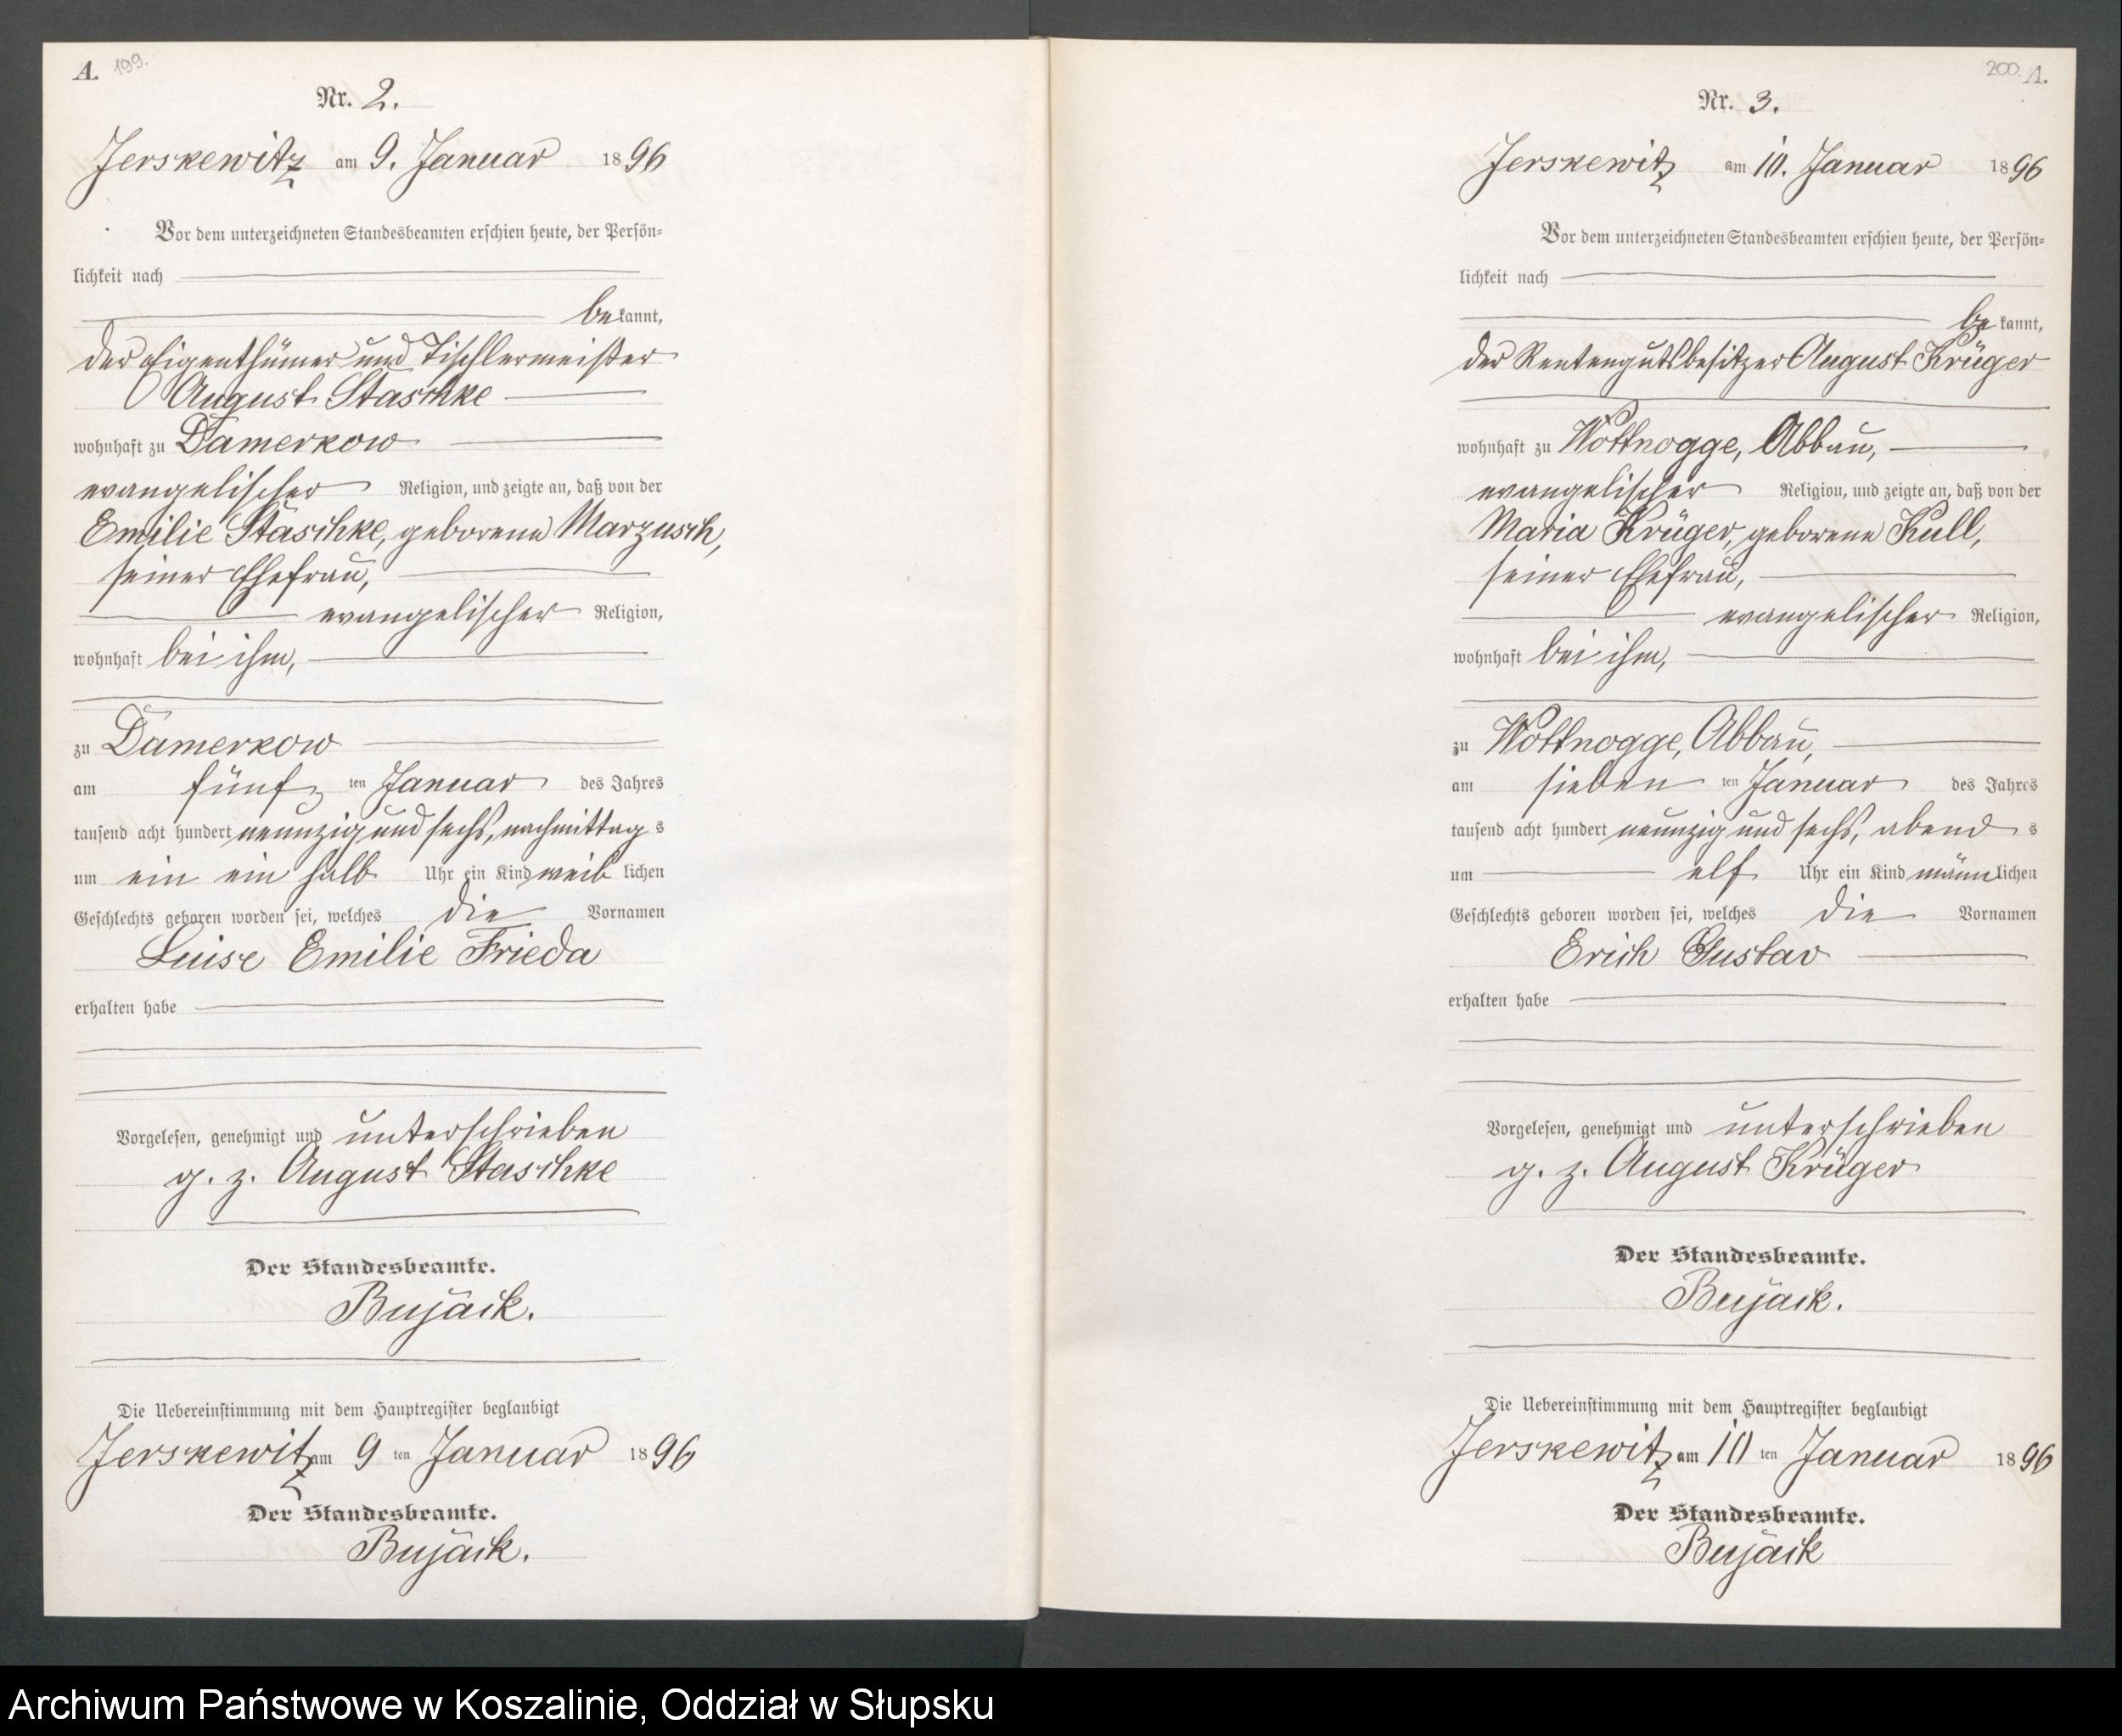 A. 199.
Nr. 2.
Jerskewitz am 9. Januar 1896
Vor dem unterzeichneten Standesbeamten erschien heute, der Persön-
lichkeit nach
bekannt,
der Eigenthümer und Tischlermeister
August Staschke
wohnhaft zu Damerkow
evangelischer Religion, und zeigte an, daß von der
Emilie Staschke, geborene Marzusch,
seiner Ehefrau,
evangelischer Religion,
wohnhaft bei ihm,
zu Damerkow
am fünf ten Januar des Jahres
tausend acht hundert neunzig und sechs, nachmittags
um ein ein halb Uhr ein Kind weiblichen
Geschlechts geboren worden sei, welches die Vornamen
Luise Emilie Frieda
erhalten habe
Vorgelesen, genehmigt und unterschrieben
g. z. August Staschke
Der Standesbeamte.
Bujack.
Die Uebereinstimmung mit dem Hauptregister beglaubigt
Jerskewitz am 9 ten Januar 1896
Der Standesbeamte.
Bujack.
200. A.
Nr. 3.
Jerskewitz am 10. Januar 1896
Vor dem unterzeichneten Standesbeamten erschien heute, der Persön-
lichkeit nach
bekannt,
der Rentengutsbesitzer August Krüger
wohnhaft zu Wottnogge, Abbau,
evangelischer Religion, und zeigte an, daß von der
Maria Krüger, geborene Kull,
seiner Ehefrau,
evangelischer Religion,
wohnhaft bei ihm,
zu Wottnogge, Abbau,
am sieben ten Januar des Jahres
tausend acht hundert neunzig und sechs, abends
um elf Uhr ein Kind männlichen
Geschlechts geboren worden sei, welches die Vornamen
Erich Gustav
erhalten habe
Vorgelesen, genehmigt und unterschrieben
g. z. August Krüger
Der Standesbeamte.
Bujack.
Die Uebereinstimmung mit dem Hauptregister beglaubigt
Jerskewitz am 10 ten Januar 1896
Der Standesbeamte.
Bujack
Archiwum Państwowe w Koszalinie, Oddział w Słupsku